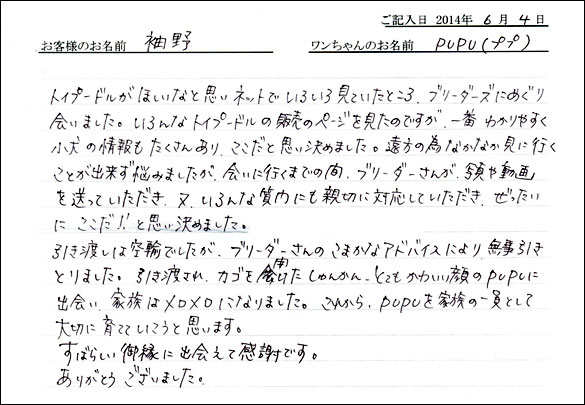 ご記入日 2014年 6月 4日
お客様のお名前 袖野 ワンちゃんのお名前 PUPU(ププ)
トイプードルがほしいなと思いネットでいろいろ見ていたところ、ブリーダーズにめぐり
会いました。いろんなトイプードルの販売のページを見たのですが、一番わかりやすく
小犬の情報もたくさんあり、ここだと思い決めました。遠方の為なかなか見に行く
ことが出来ず悩みましたが、会いに行くまでの間、ブリーダーさんが、写真や動画
を送っていただき、又、いろんな質問にも親切に対応していただき、ぜったい
に ここだ!! と思い決めました。
引き渡しは空輸でしたが、ブリーダーさんのこまかなアドバイスにより、無事引き
とりました。引き渡され、カゴを開けたしゅんかん、とてもかわいい顔のPUPUに
出会い、家族はメロメロになりました。これから、PUPUを家族の一員として
大切に育てていこうと思います。
すばらしい御縁に出会えて感謝です。
ありがとうございました。